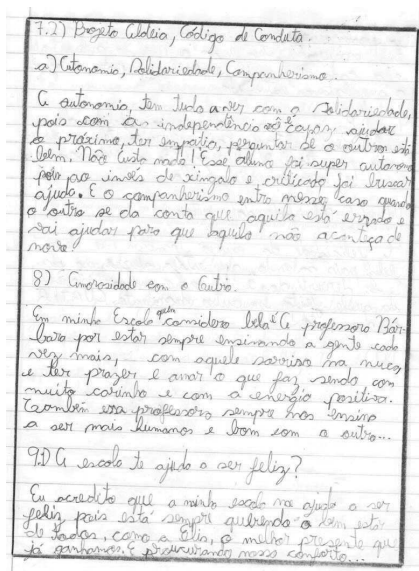 7.2) Projeto Aldeia, Código de Conduta.
a) Autonomia, Solidariedade, Companheirismo...
A autonomia, tem tudo a ver com a Solidariedade,
pois com as independência só capaz, ajudar
o próximo, ter empatia, perguntar se o outro está
bem. Não custa nada! Esse aluno foi super autonomo
pois ao invés de xingalo e criticado foi buscar
ajuda. E o companheirismo entra nesse, caso quando
o outro se da conta que aquilo está errado e
vai ajudar para que aquilo não aconteça de
novo.
8) Amorosidade com o Outro.
Em minha Escola quem considero bela é A professora Bár-
bara por estar sempre ensinando a gente cada
vez mais, com aquele sorriso na nuca,
e ter prazer e amar o que faz, sendo, com
muito carinho e com a energia positiva.
Também essa professora sempre nos ensina
a ser mais humanos e bom com o outro...
9.1) A escola te ajuda a ser feliz?
Eu acredito que a minha escola me ajuda a ser
feliz, pois está sempre querendo o bem estar
de todos, como a Elis, o melhor presente que
já ganhamos. E procurando nosso conforto...